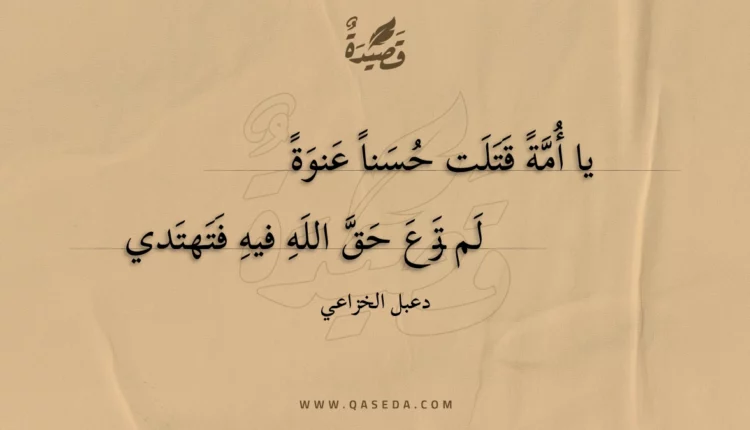 قَصِيْدَةٌ
يا أُمَّةً قَتَلَت حُسَيناً عَنوَةً
لَم تَرعَ حَقَّ اللَهِ فيهِ فَتَهتَدي
دعبل الخزاعي
WWW.QASEDA.COM